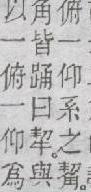 俯一仰系之
角皆踊曰與
以一俯一仰為